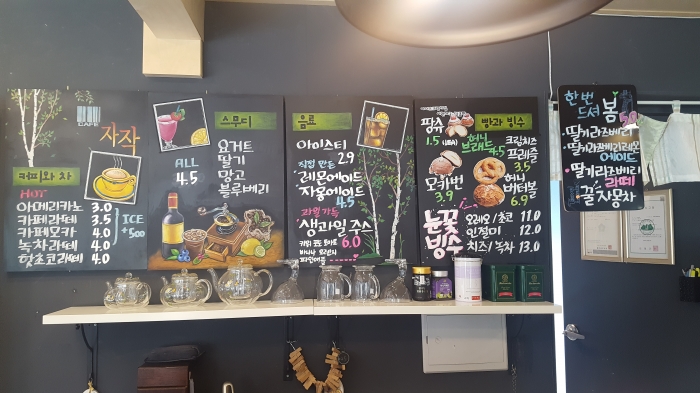 CAFE
자작
커피와 차
HOT
아메리카노 3.0
카페라떼 3.5
카페모카 4.0
녹차라떼 4.0
핫초코라떼 4.0
ICE
+500
스무디
ALL
4.5
요거트
딸기
망고
블루베리
음료
아이스티
2.9
직접 만든
레몬에이드
자몽에이드
4.5
과일가득
생과일 주스
6.0
빵과 빙수
팡슈
1.5 (1EA)
허니
브레드
4.5
크림치즈
프레즐
3.5
모카번
3.9
허니
버터볼
6.9
눈꽃
빙수
오레오/초코 11.0
인절미 12.0
치즈/녹차 13.0
한번
드셔 봄
5.0
딸기라즈베리
딸기라즈베리레몬
에이드
딸기라즈베리
라떼
귤자몽차